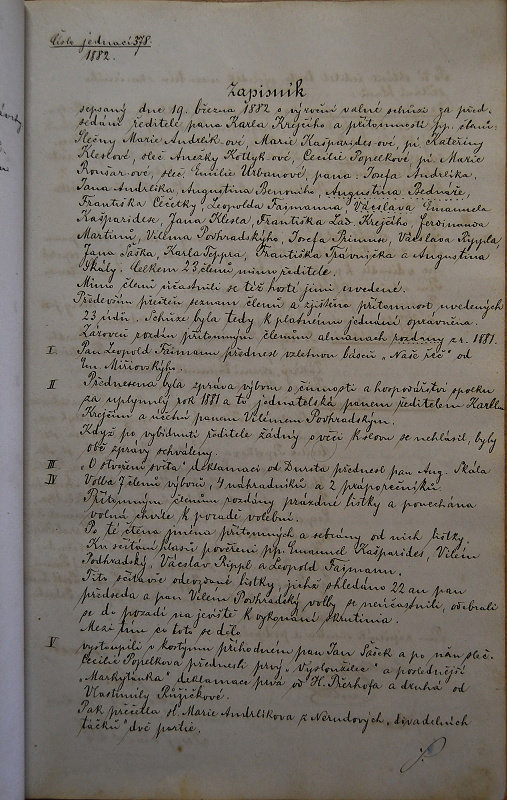 Číslo jednací 378.
1882.
Zápisník
sepsaný dne 19. března 1882 o výroční valné schůzi za před-
sedání ředitele pana Karla Krejčího a přítomnosti pp. členů:
Slečny Marie Andrlík ové, Marie Kašparides ové, pí Kateřiny
Kleslové, sleč. Anežky Kotlyk ové, Cecilie Popelkové, pí. Marie
Ronšar ové, sleč. Emilie Urbanové, pana: Josefa Andrlíka,
Jana Andrlíka, Augustina Benoniho, Augustina Bednáře,
Františka Čečetky, Leopolda Fajmanna, Václava Emanuela
Kašparidese, Jana Klesla, Františka Lad. Krejčího, Ferdinanda
Martinů, Viléma Podhradského, Josefa Primuse, Václava Rippla,
Jana Šáška, Karla Seppra, Františka Trávníčka a Augustina
Skály. Celkem 23 členů mimo ředitele.
Mimo členů účastnili se též hosté jimi uvedené.
Především přečten seznam členů a zjištěna přítomnost uvedených
23 údů. Schůze byla tedy k platnému jednání oprávněna.
Zároveň rozdán přítomným členům almanach rozdaný z r. 1881.
I Pan Leopold Fajmann přednesl vzletnou báseň „Naše řeč" od
Em. Miřiovského.
II Přednesena byla zpráva výboru o činnosti a hospodářství spolku
za uplynulý rok 1881 a to jednatelská panem ředitelem Karlem
Krejčím a účetní panem Vilémem Podhradským.
Když po vybídnutí ředitele žádný o věci k slovu se nehlásil, byly
obě zprávy schváleny.
III „O stvoření světa" deklamaci od Dursta přednesl pan Aug. Skála
IV Volba 7 členů výboru, 4 náhradníků a 2 praporečníků.
Přítomným členům rozdány prázdné lístky a ponechána
volná chvíle k poradě volební.
Po té čtena jména přítomných a sebrány od nich lístky.
Ku sčítání hlasů pověřeni pp. Emanuel Kašparides, Vilém
Podhradský, Václav Rippl a Leopold Fajmann.
Tito sečtavše odevzdané lístky, jichž shledáno 22 an pan
předseda a pan Vilém Podhradský volby se neúčastnili, odebrali
se do pozadí na jeviště k vykonání skrutinia.
Mezi tím co toto se dělo
V vystoupili v kostymu příhodném pan Jan Šášek a po něm sleč.
Cecilie Popelkova přednesli prvý „Vysloužilec" a poslednější
„Markytánka" deklamace prvá od H. Přerhofa a druhá od
Vlastimily Růžičkové.
Pak přečetla sl. Marie Andrlíkova z Nerudových „divadelních
táčků" dvě partie.